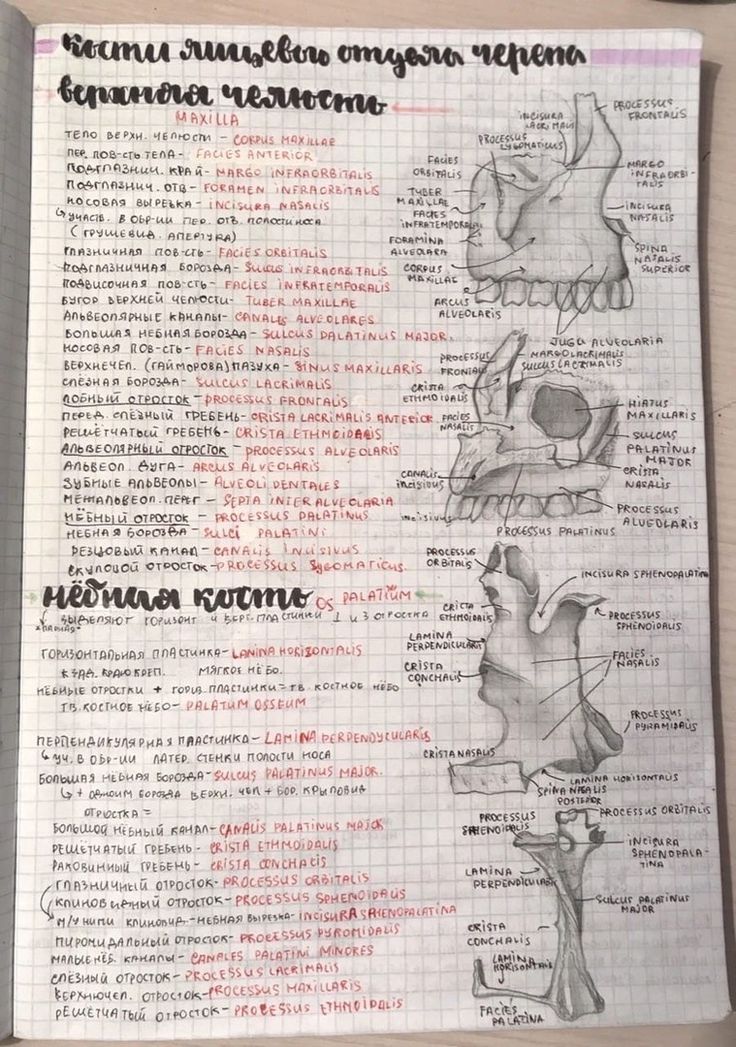 кости лицевого отдела черепа
верхняя челюсть
MAXILLA
ТЕЛО ВЕРХН. ЧЕЛЮСТИ – CORPUS MAXILLAE
ПЕР. ПОВ-СТЬ ТЕЛА – FACIES ANTERIOR
ПОДГЛАЗНИЧ. КРАЙ – MARGO INFRAORBITALIS
ПОДГЛАЗНИЧ. ОТВ – FORAMEN INFRAORBITALIS
НОСОВАЯ ВЫРЕЗКА – INCISURA NASALIS
УЧАСТВ. В ОБР-ИИ ПЕР. ОТВ. ПОЛОСТИ НОСА
(ГРУШЕВИД. АПЕРТУРА)
ГЛАЗНИЧНАЯ ПОВ-СТЬ – FACIES ORBITALIS
ПОДГЛАЗНИЧНАЯ БОРОЗДА – SULCUS INFRAORBITALIS
ПОДВИСОЧНАЯ ПОВ-СТЬ – FACIES INFRATEMPORALIS
БУГОР ВЕРХНЕЙ ЧЕЛЮСТИ – TUBER MAXILLAE
АЛЬВЕОЛЯРНЫЕ КАНАЛЫ – CANALIS ALVEOLARES
БОЛЬШАЯ НЕБНАЯ БОРОЗДА – SULCUS PALATINUS MAJOR.
НОСОВАЯ ПОВ-СТЬ – FACIES NASALIS
ВЕРХНЕЧЕЛ. (ГАЙМОРОВА) ПАЗУХА – SINUS MAXILLARIS
СЛЁЗНАЯ БОРОЗДА – SULCUS LACRIMALIS
ЛОБНЫЙ ОТРОСТОК – PROCESSUS FRONTALIS
ПЕРЕД. СЛЁЗНЫЙ ГРЕБЕНЬ – CRISTA LACRIMALIS ANTERIOR
РЕШЁТЧАТЫЙ ГРЕБЕНЬ – CRISTA ETHMOIDALIS
АЛЬВЕОЛЯРНЫЙ ОТРОСТОК – PROCESSUS ALVEOLARIS
АЛЬВЕОЛ. ДУГА – ARCUS ALVEOLARIS
ЗУБНЫЕ АЛЬВЕОЛЫ – ALVEOLI DENTALES
МЕЖАЛЬВЕОЛ. ПЕРЕГ – SEPTA INTER ALVEOLARIA
НЁБНЫЙ ОТРОСТОК – PROCESSUS PALATINUS
НЕБНАЯ БОРОЗДА – SULCI PALATINI
РЕЗЦОВЫЙ КАНАЛ – CANALIS INCISIVUS
СКУЛОВОЙ ОТРОСТОК – PROCESSUS ZYGOMATICUS
INCISURA
LACRIMALIS
PROCESSUS
ZYGOMATICUS
PROCESSUS
FRONTALIS
FACIES
ORBITALIS
MARGO
INFRAORBI-
TALIS
TUBER
MAXILLAE
FACIES
INFRATEMPORAL
INCISURA
NASALIS
FORAMINA
ALVEOLARA
SPINA
NASALIS
SUPERIOR
CORPUS
MAXILLAE
ARCUS
ALVEOLARIS
JUGU ALVEOLARIA
PROCESSUS
FRONTALIS
MARGO LACRIMALIS
SULCUS LACRIMALIS
CRISTA
ETHMOIDALIS
HIATUS
MAXILLARIS
FACIES
NASALIS
SULCUS
PALATINUS
MAJOR
CANALIS
INCISIOUS
CRISTA
NASALIS
INCISIVUS
PROCESSUS
ALVEOLARIS
PROCESSUS PALATINUS
нёбная кость OS PALATIUM
*ПАРНАЯ*
ВЫДЕЛЯЮТ ГОРИЗОНТ И ВЕРТ. ПЛАСТИНКИ ⊥ И 3 ОТРОСТКА
ГОРИЗОНТАЛЬНАЯ ПЛАСТИНКА – LANINA HORIZONTALIS
К ЗАД. КРАЮ КРЕП. МЯГКОЕ НЁБО.
НЁБНЫЕ ОТРОСТКИ + ГОРИЗ. ПЛАСТИНКИ = ТВ. КОСТНОЕ НЁБО
ТВ. КОСТНОЕ НЁБО – PALATUM OSSEUM
ПЕРПЕНДИКУЛЯРНАЯ ПЛАСТИНКА – LAMINA PERPENDYCULARIS
УЧ. В ОБР-ИИ ЛАТЕР. СТЕНКИ ПОЛОСТИ НОСА
БОЛЬШАЯ НЕБНАЯ БОРОЗДА – SULCUS PALATINUS MAJOR.
+ ОДНОИМ БОРОЗДА ВЕРХН. ЧЕЛ + БОР. КРЫЛОВИД
ОТРОСТКА =
БОЛЬШОЙ НЁБНЫЙ КАНАЛ – CANALIS PALATINUS MAJOR
РЕШЁТЧАТЫЙ ГРЕБЕНЬ – CRISTA ETHMOIDALIS
РАКОВИННЫЙ ГРЕБЕНЬ – CRISTA CONCHACIS
ГЛАЗНИЧНЫЙ ОТРОСТОК – PROCESSUS ORBITALIS
КЛИНОВИДНЫЙ ОТРОСТОК – PROCESSUS SPHENOIDALIS
М/У НИМИ КЛИНОВИД.-НЕБНАЯ ВЫРЕЗКА – INCISURA SPHENOPALATINA
ПИРОМИДАЛЬНЫЙ ОТРОСТОК – PROCESSUS PYROMIDALIS
МАЛЫЕ НЁБ. КАНАЛЫ – CANALES PALATINI MINORES
СЛЁЗНЫЙ ОТРОСТОК – PROCESSUS LACRIMALIS
ВЕРХНЮЧЕЛ. ОТРОСТОК – PROCESSUS MAXILLARIS
РЕШЁТЧАТЫЙ ОТРОСТОК – PROCESSUS ETHMOIDALIS
PROCESSUS
ORBITALIS
INCISURA SPHENOPALATINA
CRISTA
ETHMOIDALIS
PROCESSUS
SPHENOIDALIS
LAMINA
PERPENDICULARIS
FACIES
NASALIS
CRISTA
CONCHALIS
PROCESSUS
PYRAMIDALIS
CRISTA NASALIS
LAMINA HORISONTALIS
SPINA NASALIS
POSTERIOR
PROCESSUS
SPHENOIDALIS
PROCESSUS ORBITALIS
INCISURA
SPHENOPALA-
TINA
LAMINA
PERPENDICULARIS
SULCUS PALATINUS
MAJOR
CRISTA
CONCHALIS
LAMINA
HORISONTALIS
FACIES
PALATINA